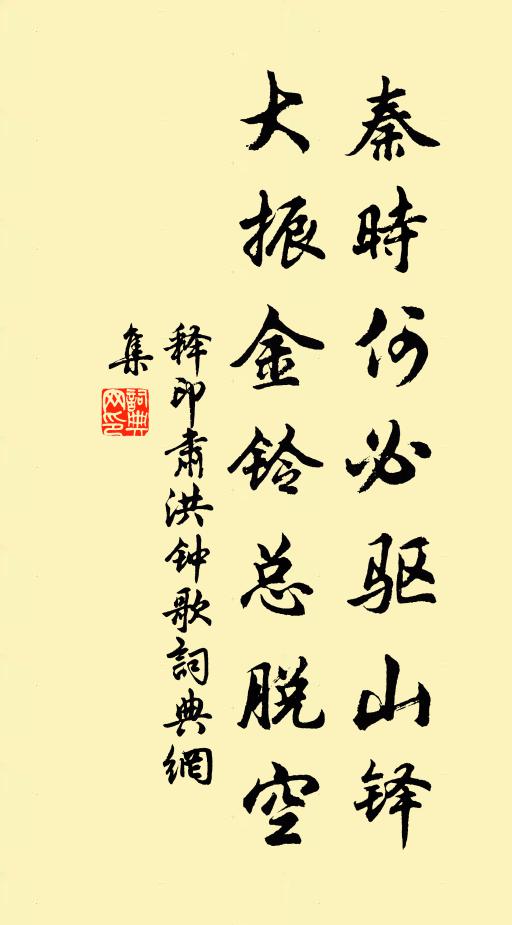 秦時何必驱山铎
大振金铃总脱空
释印肃洪钟歌詞典網
集
詞典
网印